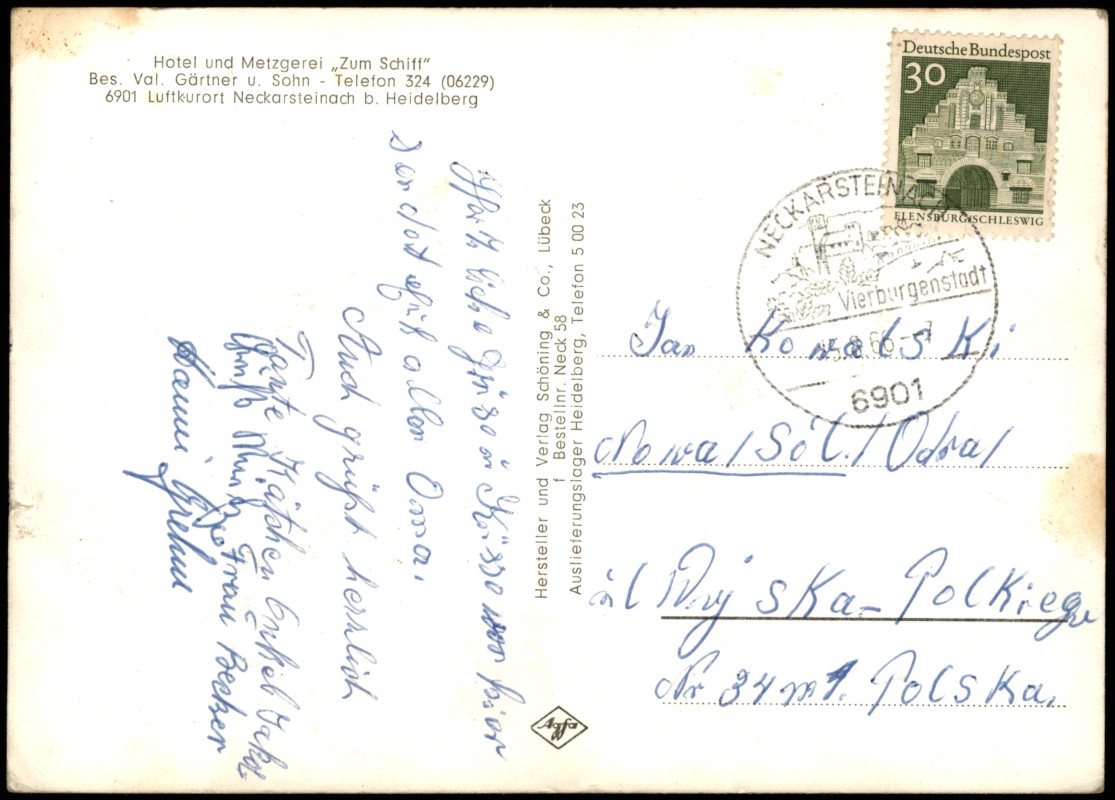 Hotel und Metzgerei „Zum Schiff"
Bes. Val. Gärtner u. Sohn - Telefon 324 (06229)
6901 Luftkurort Neckarsteinach b. Heidelberg
Deutsche Bundespost
30
FLENSBURG/SCHLESWIG
NECKARSTEINACH
Vierburgenstadt
6901
Grüse u Küsse von hier
sendet euch allen Oma.
Auch grüßt herzlich
Tante Käthchen
Frau Becker
Hanni
Hersteller und Verlag Schöning & Co., Lübeck
f Bestellnr. Neck 58
Auslieferungslager Heidelberg, Telefon 5 00 23
Agfa
Jan Kowalski
Nowa/Sól/Odra/
Polskiego
Nr 34 m 1. Polska.